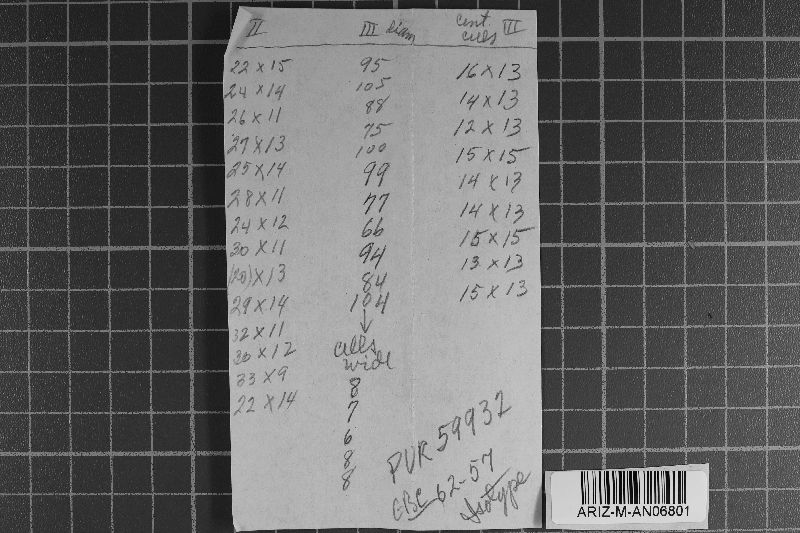 II
22 x 15
24 x 14
26 x 11
27 x 13
25 x 14
28 x 11
24 x 12
30 x 11
(20) x 13
29 x 14
32 x 11
30 x 12
33 x 9
22 x 14
III diam
95
105
88
75
100
99
77
66
94
84
104
↓
cells
wide
8
7
6
8
8
Cent. III
cells
16 x 13
14 x 13
12 x 13
15 x 15
14 x 13
14 x 13
15 x 15
13 x 13
15 x 13
PUR 59932
GBC 62-57
Isotype
ARIZ-M-AN06801